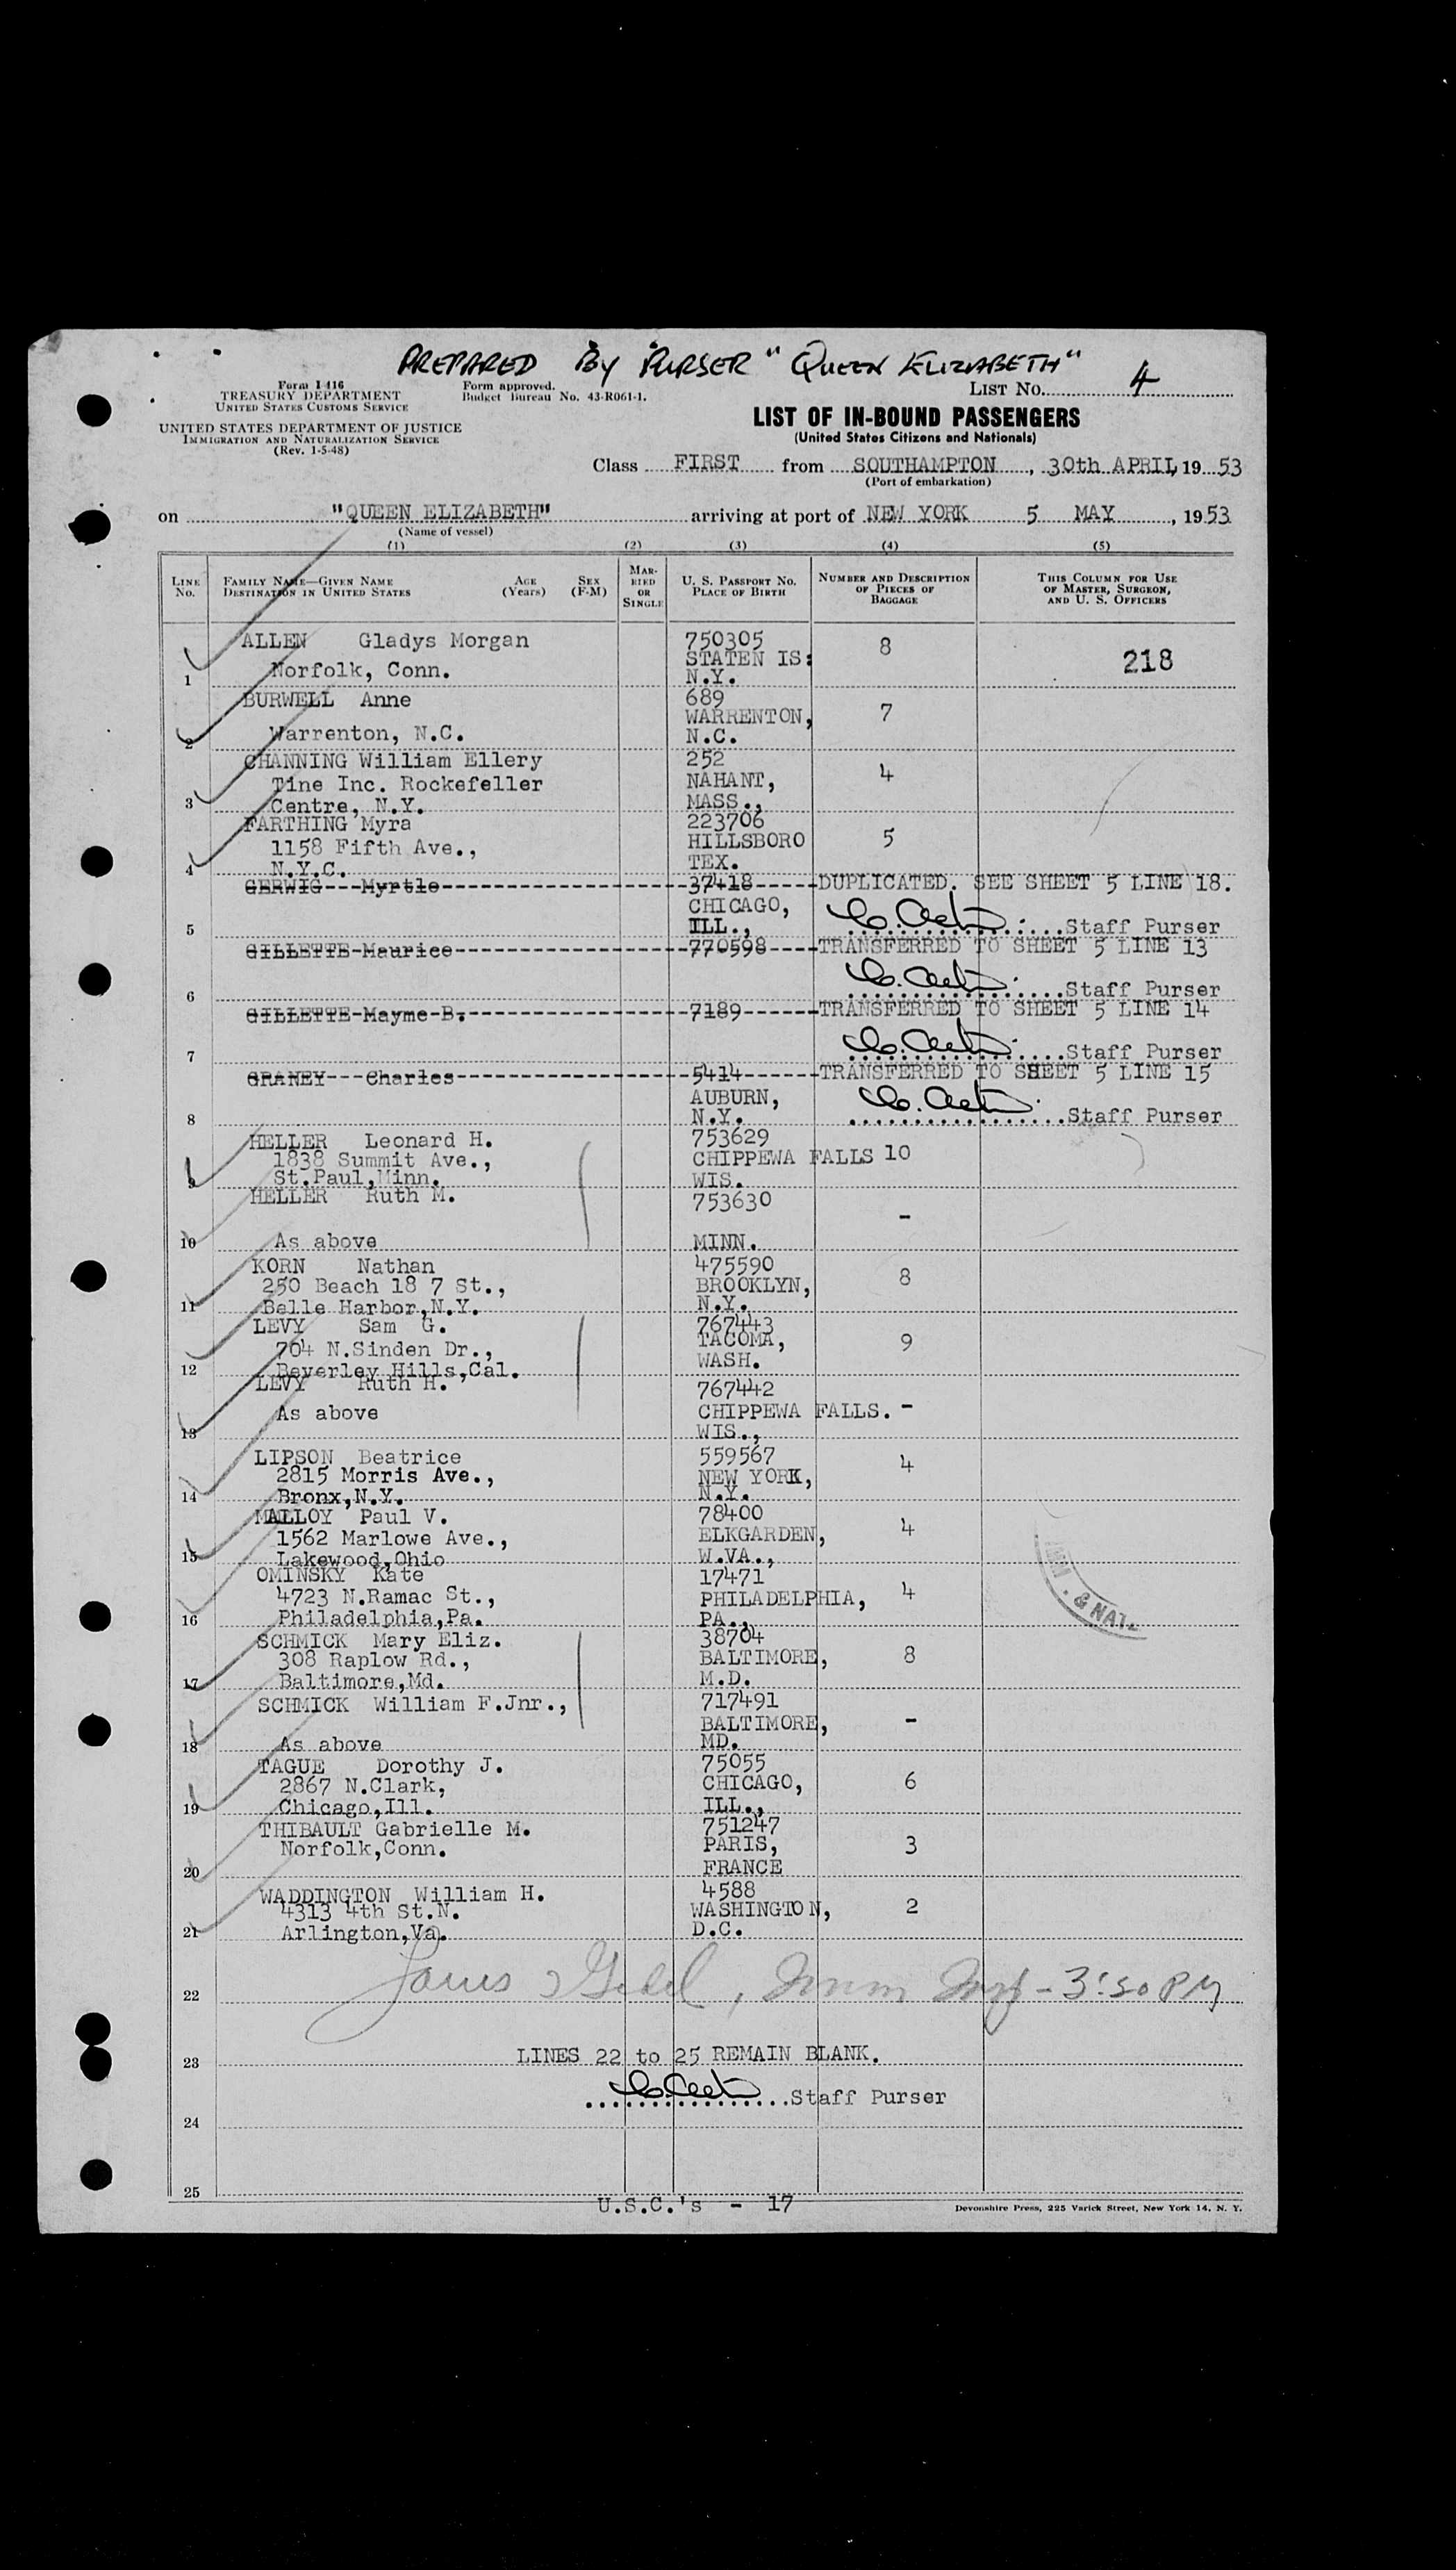 PREPARED BY PURSER "QUEEN ELIZABETH"
Form I-416
TREASURY DEPARTMENT
UNITED STATES CUSTOMS SERVICE
UNITED STATES DEPARTMENT OF JUSTICE
IMMIGRATION AND NATURALIZATION SERVICE
(Rev. 1-5-48)
Form approved.
Budget Bureau No. 43-R061-1.
LIST NO. 4
LIST OF IN-BOUND PASSENGERS
(United States Citizens and Nationals)
Class FIRST from SOUTHAMPTON, 30th APRIL, 19 53
(Port of embarkation)
on "QUEEN ELIZABETH" arriving at port of NEW YORK 5 MAY, 1953
(Name of vessel)
(1) (2) (3) (4) (5)
LINE NO.
FAMILY NAME—GIVEN NAME
DESTINATION IN UNITED STATES
AGE (Years)
SEX (F-M)
MARRIED OR SINGLE
U. S. PASSPORT NO.
PLACE OF BIRTH
NUMBER AND DESCRIPTION OF PIECES OF BAGGAGE
THIS COLUMN FOR USE OF MASTER, SURGEON, AND U. S. OFFICERS
1 ALLEN Gladys Morgan 750305 8 218
Norfolk, Conn. STATEN IS:
N.Y.
2 BURWELL Anne 689 7
Warrenton, N.C. WARRENTON,
N.C.
3 CHANNING William Ellery 252 4
Tine Inc. Rockefeller NAHANT,
Centre, N.Y. MASS.,
4 FARTHING Myra 223706 5
1158 Fifth Ave., HILLSBORO
N.Y.C. TEX.
5 GERWIG---Myrtle 37418 DUPLICATED. SEE SHEET 5 LINE 18.
CHICAGO,
ILL., Staff Purser
6 GILLETTE-Maurice 770598 TRANSFERRED TO SHEET 5 LINE 13
Staff Purser
7 GILLETTE-Mayme-B. 7189 TRANSFERRED TO SHEET 5 LINE 14
Staff Purser
8 GRANEY---Charles 5414 TRANSFERRED TO SHEET 5 LINE 15
AUBURN,
N.Y. Staff Purser
9 HELLER Leonard H. 753629
1838 Summit Ave., CHIPPEWA FALLS 10
St.Paul,Minn. WIS.
10 HELLER Ruth M. 753630 -
As above MINN.
11 KORN Nathan 475590 8
250 Beach 18 7 St., BROOKLYN,
Belle Harbor,N.Y. N.Y.
12 LEVY Sam G. 767443 9
704 N.Sinden Dr., TACOMA,
Beverley Hills,Cal. WASH.
13 LEVY Ruth H. 767442
As above CHIPPEWA FALLS. -
WIS.,
14 LIPSON Beatrice 559567 4
2815 Morris Ave., NEW YORK,
Bronx,N.Y. N.Y.
15 MALLOY Paul V. 78400 4
1562 Marlowe Ave., ELKGARDEN,
Lakewood,Ohio W.VA.,
16 OMINSKY Kate 17471 4
4723 N.Ramac St., PHILADELPHIA,
Philadelphia,Pa. PA.,
& NAT
17 SCHMICK Mary Eliz. 38704 8
308 Raplow Rd., BALTIMORE,
Baltimore,Md. M.D.
18 SCHMICK William F.Jnr., 717491 -
BALTIMORE,
As above MD.
19 TAGUE Dorothy J. 75055 6
2867 N.Clark, CHICAGO,
Chicago,Ill. ILL.,
20 THIBAULT Gabrielle M. 751247 3
Norfolk,Conn. PARIS,
FRANCE
21 WADDINGTON William H. 4588 2
4313 4th St.N. WASHINGTON,
Arlington,Va. D.C.
22 - 3:30 PM
23 LINES 22 to 25 REMAIN BLANK.
Staff Purser
24
25
U.S.C.'s - 17
Devonshire Press, 225 Varick Street, New York 14, N. Y.